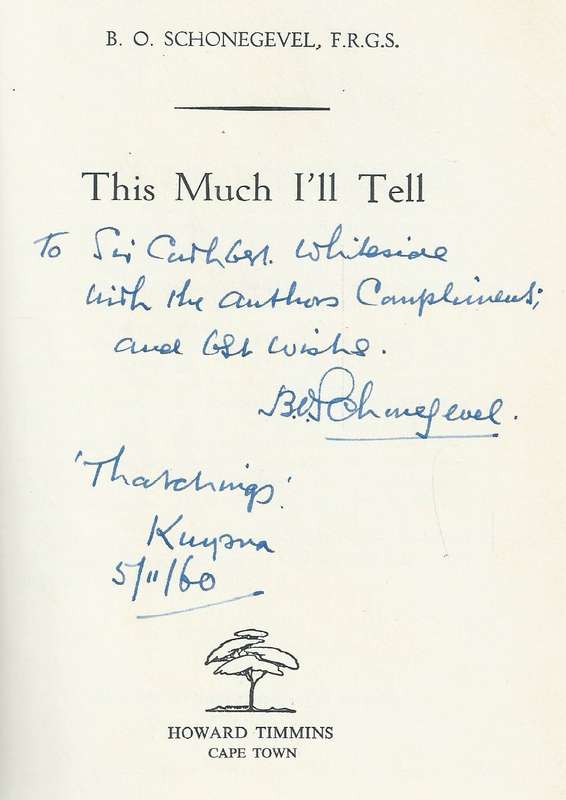 B. O. SCHONEGEVEL, F.R.G.S.
This Much I'll Tell
To Sir Cuthbert Whiteside
with the authors Compliments,
and best wishes.
B.O. Schonegevel.
'Thatchings'
Knysna
5/11/60
HOWARD TIMMINS
CAPE TOWN